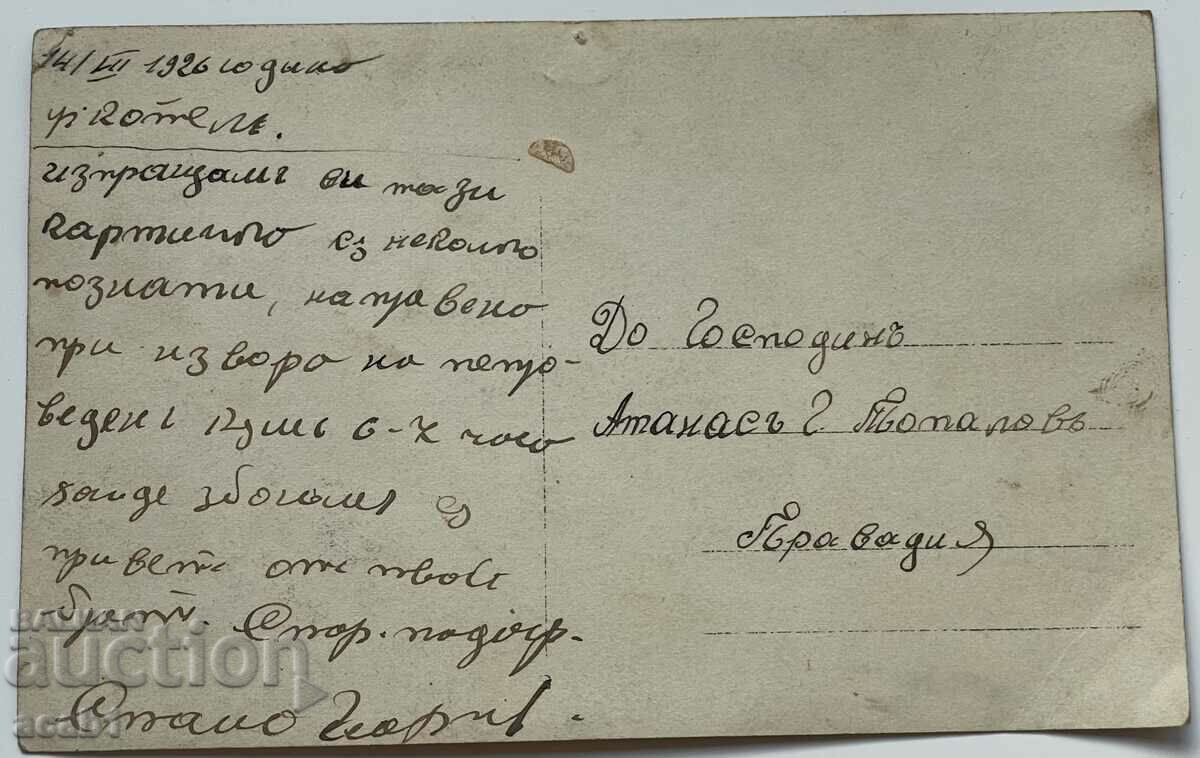 14/VII 1926 годино
гр Котелъ.
изпращамъ ви тази
картичко съ неколко
познати, направено
при извора на непро-
ведени към 6-х часо
хайде збогомъ съ
приветъ отъ твой
братъ. Стар. подофр.
Стаио Георгиев.
До Господинъ
Атанасъ Г. Топаловъ
Правадия
BALKAN
auction